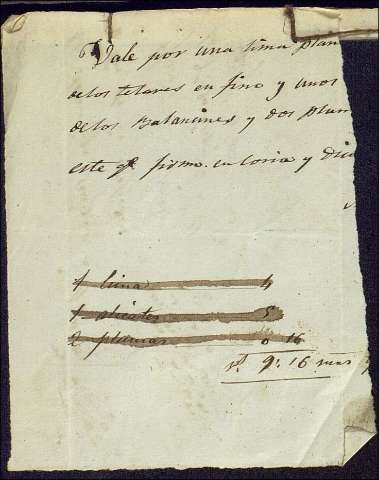 Vale por una lima plan
de los telares en fino y unos
de los Balancines y dos plan
este qe firmo en Coria y Dici
1 lima 4
1 alicates 5
2 planas 0 16
9: 16 mrs